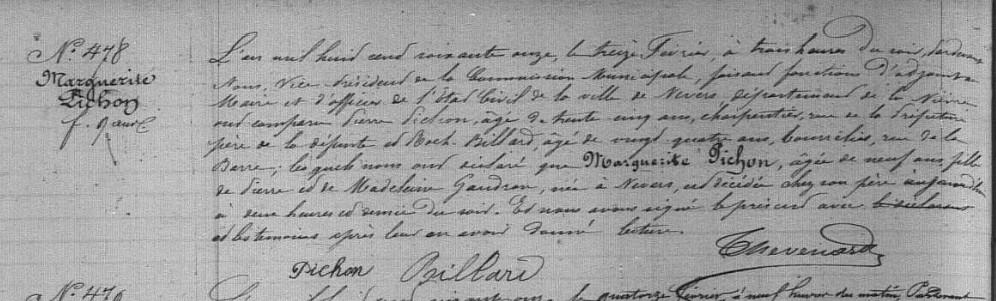 N.º 478
Marguerite
Pichon
f. 9 ans
L'an mil huit cent soixante onze, le treize Février, à trois heures du soir, pardevant
Nous, Vice président de la Commission Municipale, faisant fonctions d'adjoint au
Maire et d'officier de l'état Civil de la ville de Nevers département de la Nièvre
ont comparu Pierre Pichon, âgé de trente cinq ans, charpentier, rue de la Préfecture
père de la défunte et Roch Billard, âgé de vingt quatre ans, bourrelier, rue de la
Barre; lesquels nous ont déclaré que Marguerite Pichon, âgée de neuf ans, fille
de Pierre et de Madeleine Gaudron, née à Nevers, est décédée chez son père aujourd'hui
à deux heures et demie du soir. Et nous avons signé le présent avec le déclarant
et les témoins après leur en avoir donné lecture.
Thevenard
Pichon Billard
N.º 479
soixante onze, le quatorze Février, à neuf heures du matin, Pardevant